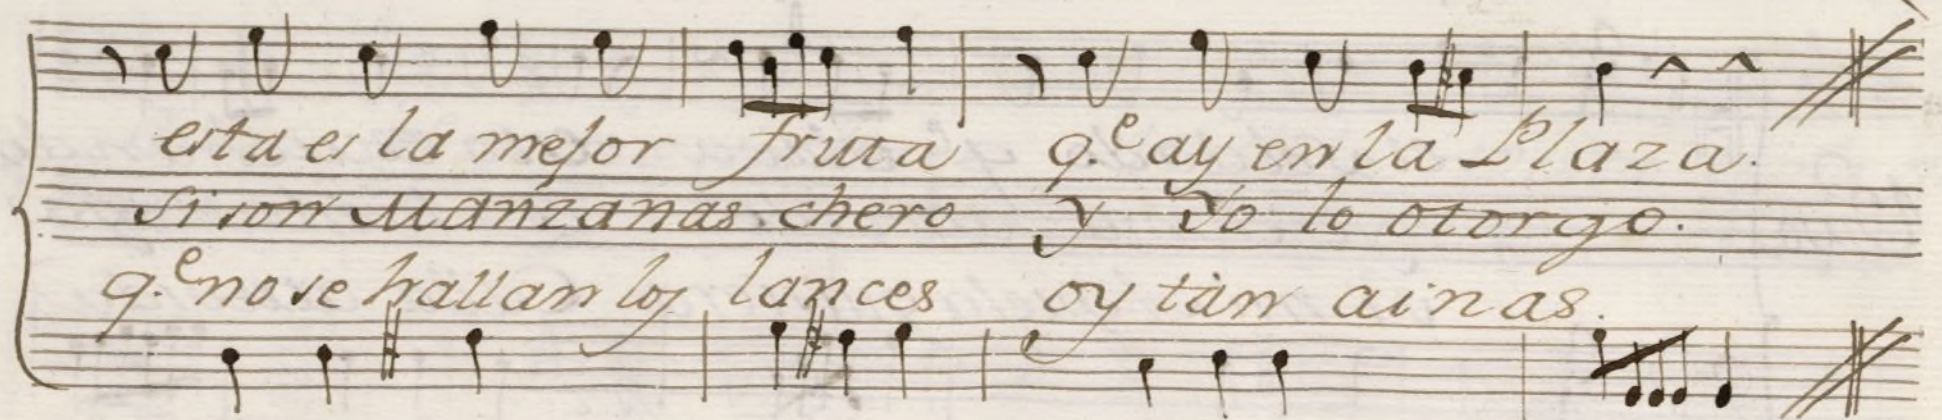 esta es la mejor fruta q.e ay en la Plaza.
Si son Manzanas. chero y Yo lo otorgo.
q.e no se hallan los lances oy tan ainas.